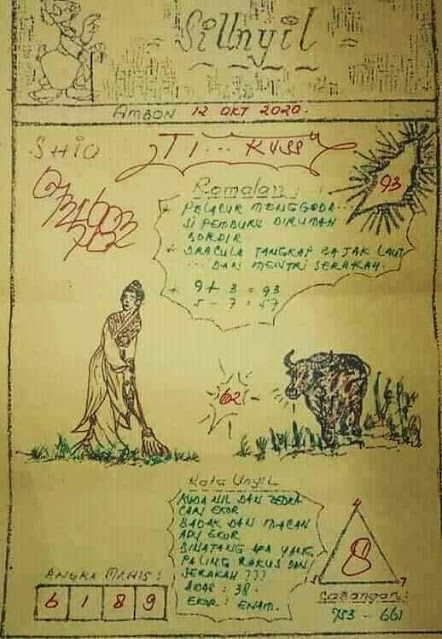 SiUnyil
AMBON 12 OKT 2020.
SHIO
TI... KUSS
93
Ramalan:
+ PELACUR MENGGODA...
SI PEMBURU DIRUMAH
BORDIR.
+ DRACULA TANGKAP BAJAK LAUT
... DAN MENTRI SERAKAH.
+ 9 + 3 = 93
5 - 7 = 57
621
Kata Unyil
KUDA NIL DAN ZEBRA
CARI EKOR
BADAK DAN MACAN
ADU EKOR
BINATANG APA YANG
PALING RAKUS DAN
SERAKAH ???
EKOR: ENAM.
ANGKA MANIS:
6 1 8 9
4
8
7
Cadangan:
753 - 661